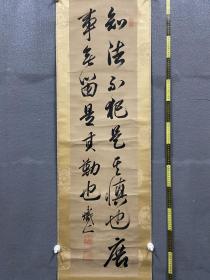 知法不犯是其慎也居
事无留是其勤也